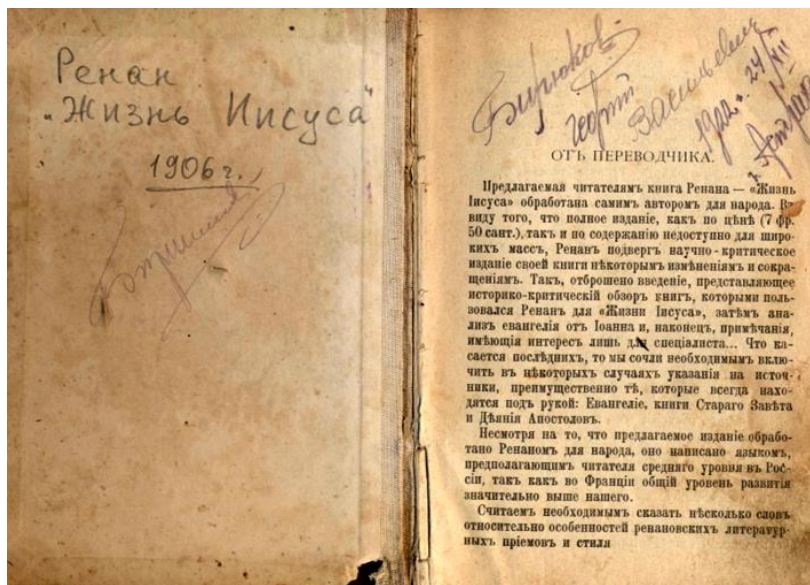 Ренан
„Жизнь Иисуса"
1906 г.
Бирюков
Георгий
Васильевич
1922 г. 24/VII
г. Астрахань
ОТЪ ПЕРЕВОДЧИКА.
Предлагаемая читателямъ книга Ренана — «Жизнь
Іисуса» обработана самимъ авторомъ для народа. Въ
виду того, что полное изданіе, какъ по цѣнѣ (7 фр.
50 сант.), такъ и по содержанію недоступно для широ-
кихъ массъ, Ренанъ подвергъ научно-критическое
изданіе своей книги нѣкоторымъ измѣненіямъ и сокра-
щеніямъ. Такъ, отброшено введеніе, представляющее
историко-критическій обзоръ книгъ, которыми поль-
зовался Ренанъ для «Жизни Іисуса», затѣмъ ана-
лизъ евангелія отъ Іоанна и, наконецъ, примѣчанія,
имѣющія интересъ лишь для спеціалиста... Что ка-
сается послѣднихъ, то мы сочли необходимымъ вклю-
чить въ нѣкоторыхъ случаяхъ указанія на источ-
ники, преимущественно тѣ, которые всегда нахо-
дятся подъ рукой: Евангеліе, книги Стараго Завѣта
и Дѣянія Апостоловъ.
Несмотря на то, что предлагаемое изданіе обрабо-
тано Ренаномъ для народа, оно написано языкомъ,
предполагающимъ читателя средняго уровня въ Рос-
сіи, такъ какъ во Франціи общій уровень развитія
значительно выше нашего.
Считаемъ необходимымъ сказать нѣсколько словъ
относительно особенностей ренановскихъ литератур-
ныхъ пріемовъ и стиля